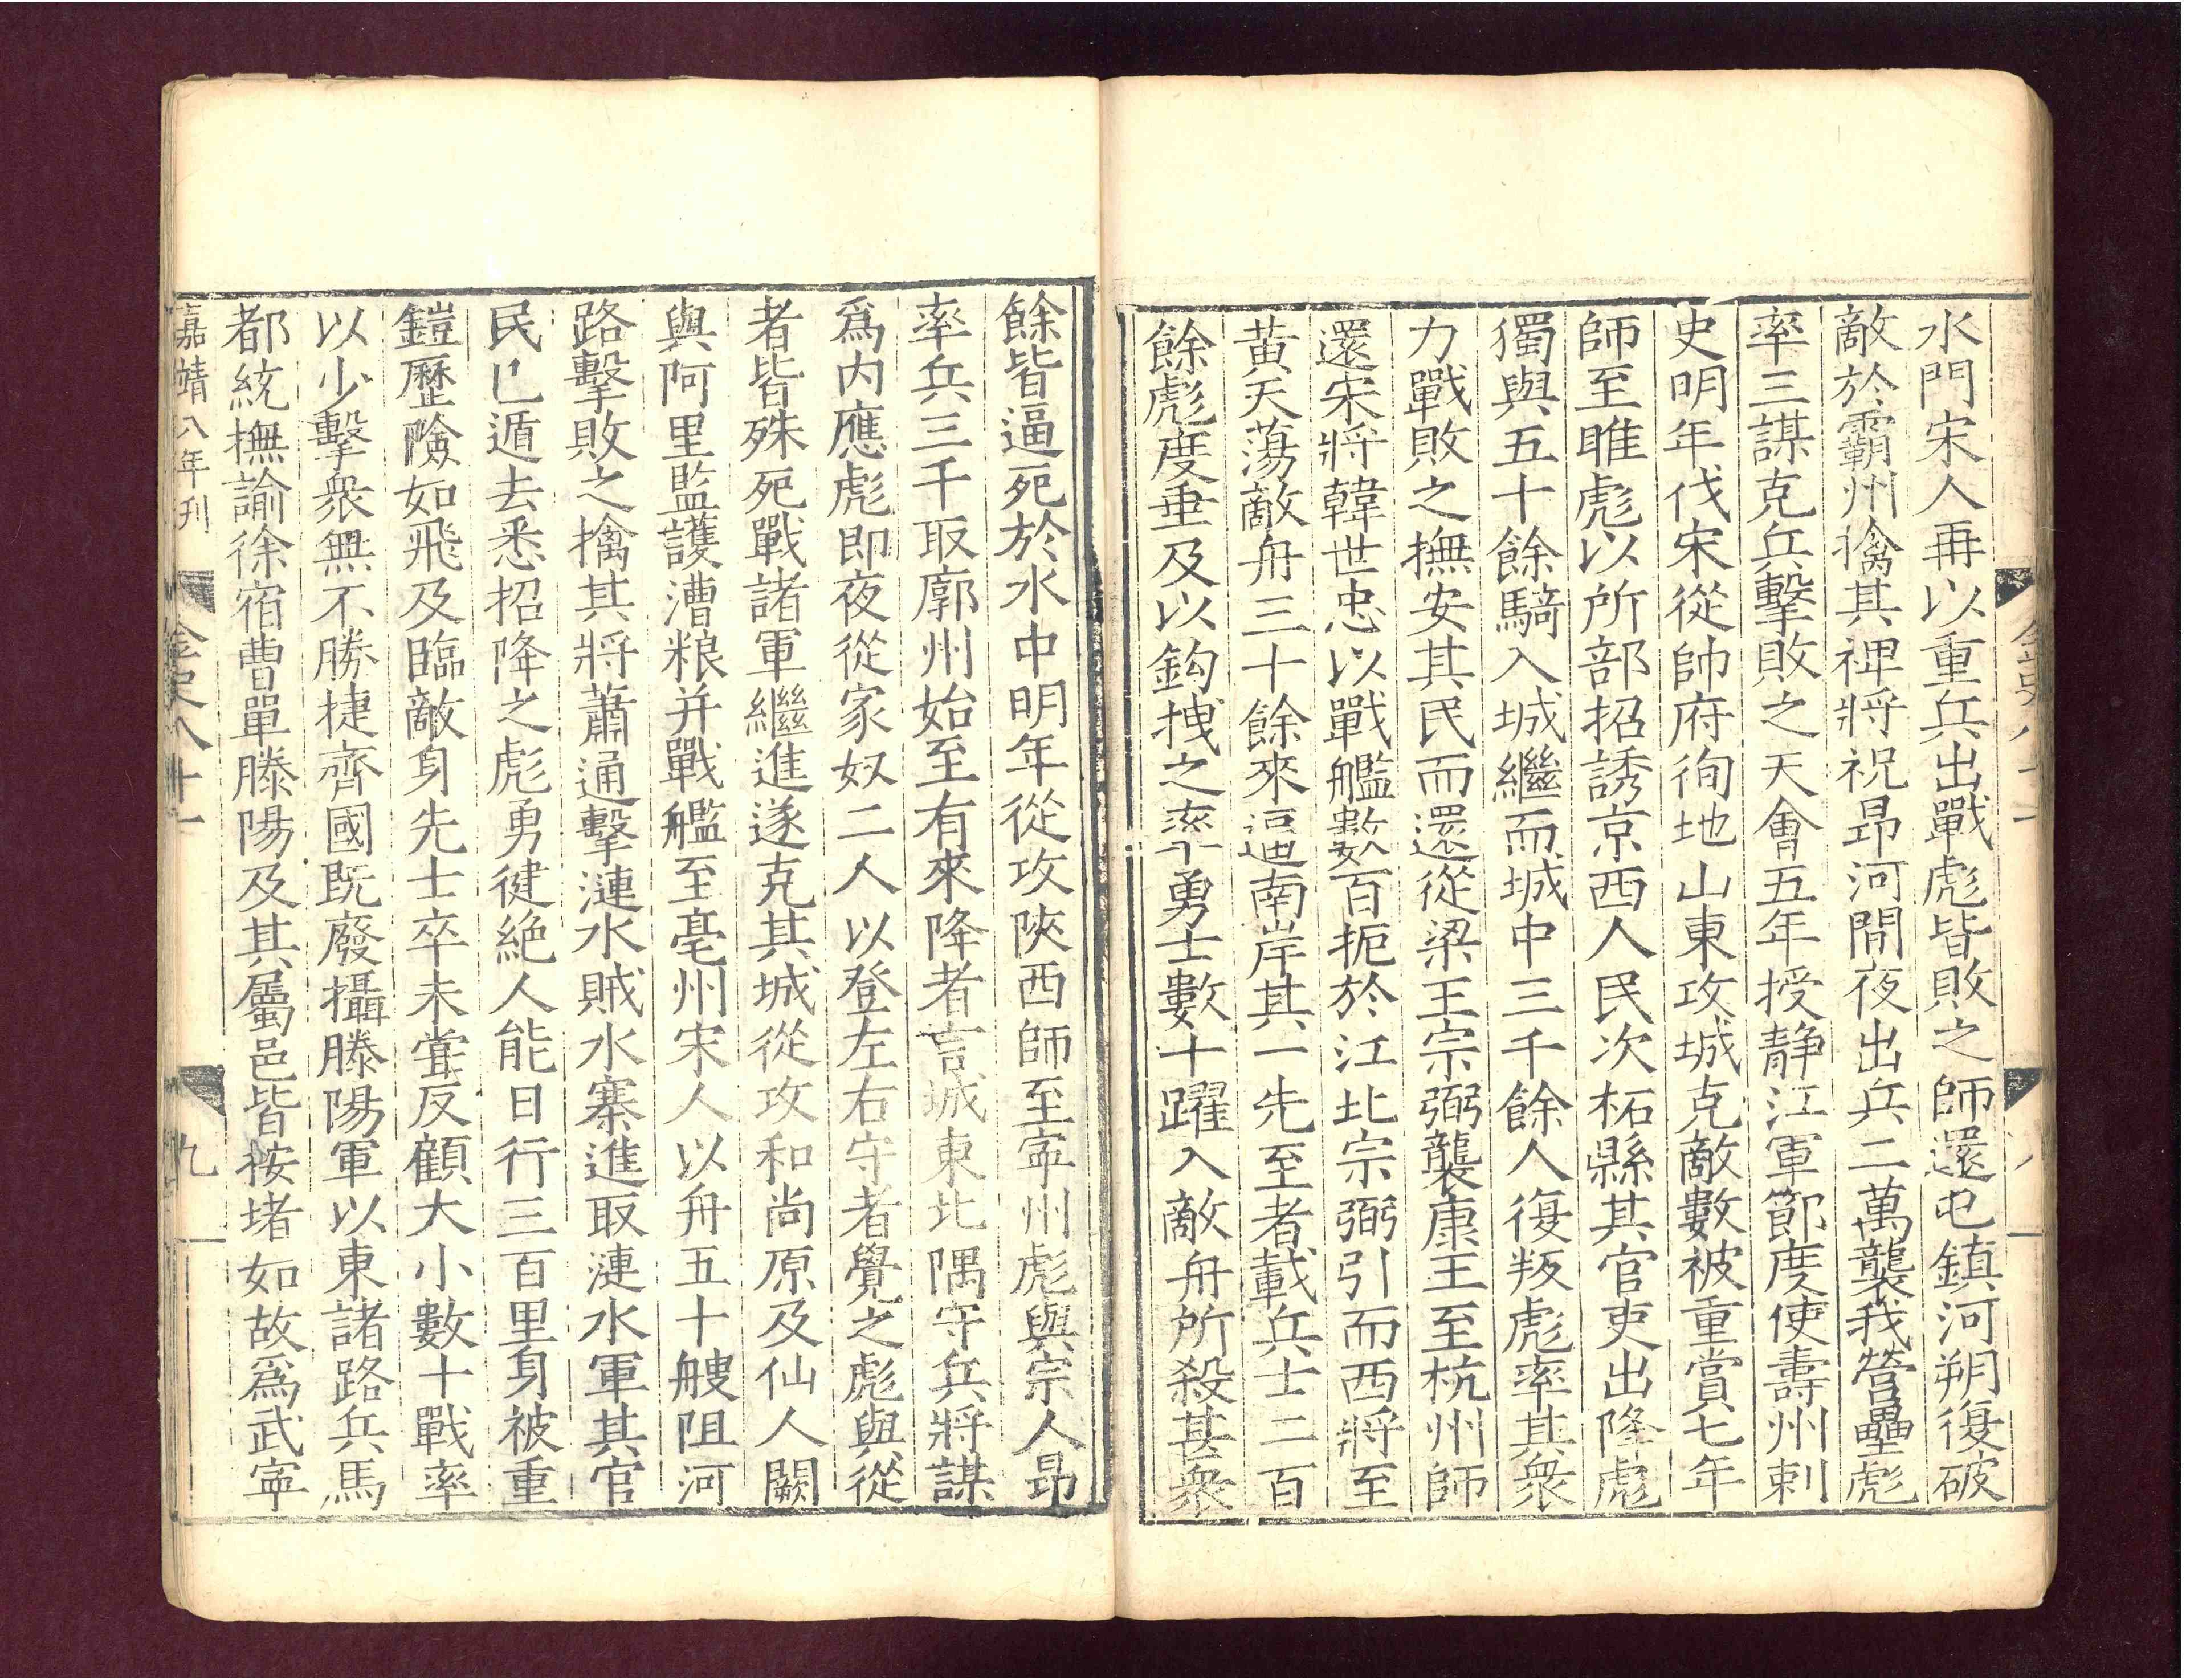 水門宋人再以重兵出戰彪皆敗之師還屯鎮河朔復破
敵於霸州擒其裨將祝昻河間夜出兵二萬襲我營壘彪
率三謀克兵擊敗之天會五年授静江軍節度使壽州刺
史明年伐宋從帥府徇地山東攻城克敵數被重賞七年
師至睢彪以所部招誘京西人民次柘縣其官吏出降彪
獨與五十餘騎入城繼而城中三千餘人復叛彪率其衆
力戰敗之撫安其民而還從梁王宗弼襲康王至杭州師
還宋將韓世忠以戰艦數百扼於江北宗弼引而西將至
黄天蕩敵舟三十餘來逼南岸其一先至者載兵士二百
餘彪度垂及以鈎拽之率勇士數十躍入敵舟所殺甚衆
餘皆逼死於水中明年從攻陜西師至寧州彪與宗人昻
率兵三千取廓州始至有來降者言城東北隅守兵將謀
爲内應彪即夜從家奴二人以登左右守者覺之彪與從
者皆殊死戰諸軍繼進遂克其城從攻和尚原及仙人關
與阿里監護漕粮并戰艦至亳州宋人以舟五十艘阻河
路擊敗之擒其將蕭通擊漣水賊水寨進取漣水軍其官
民已遁去悉招降之彪勇健絶人能日行三百里身被重
鎧歷險如飛及臨敵身先士卒未嘗反顧大小數十戰率
以少擊衆無不勝捷齊國既廢攝滕陽軍以東諸路兵馬
都統撫諭徐宿曹單滕陽及其屬邑皆按堵如故爲武寧
嘉靖八年刊 金史八十一 九